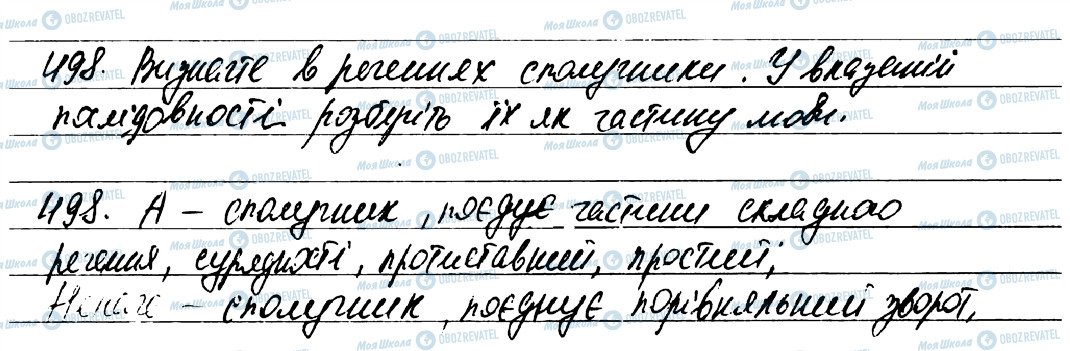 498. Визначте в реченнях сполучники. У вказаній
послідовності розберіть їх як частину мови.
498. А – сполучник, поєднує частини складного
речення, сурядності, протиставний, простий;
Неначе – сполучник, поєднує порівняльний зворот,